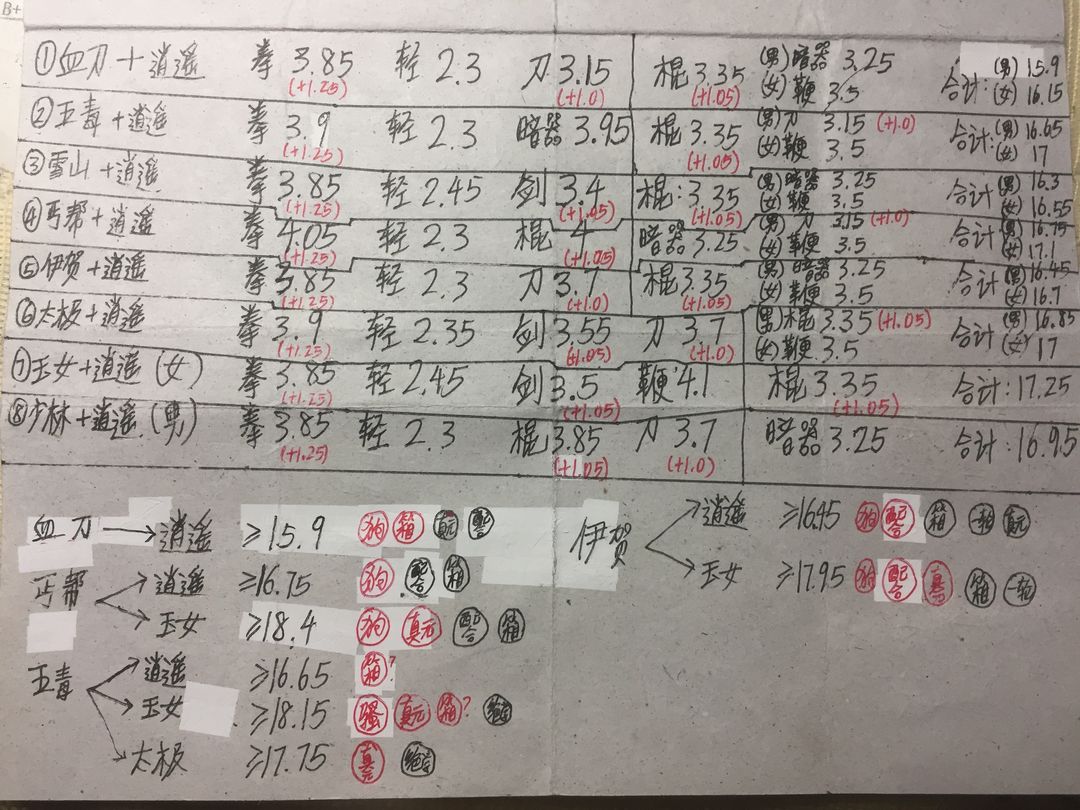 B+
①血刀+逍遥 拳 3.85 (+1.25) 轻 2.3 刀 3.15 (+1.0) 棍 3.35 (+1.05) (男)暗器 3.25 (女)鞭 3.5 合计:(男)15.9 (女)16.15
②五毒+逍遥 拳 3.9 (+1.25) 轻 2.3 暗器 3.95 棍 3.35 (+1.05) (男)刀 3.15 (+1.0) (女)鞭 3.5 合计:(男)16.65 (女)17
③雪山+逍遥 拳 3.85 (+1.25) 轻 2.45 剑 3.4 (+1.05) 棍:3.35 (+1.05) (男)暗器 3.25 (女)鞭 3.5 合计(男)16.3 (女)16.55
④丐帮+逍遥 拳 4.05 (+1.25) 轻 2.3 棍 4 (+1.05) 暗器 3.25 (男)刀 3.15 (+1.0) (女)鞭 3.5 合计(男)16.75 (女)17.1
⑤伊贺+逍遥 拳 3.85 (+1.25) 轻 2.3 刀 3.7 (+1.0) 棍 3.35 (+1.05) (男)暗器 3.25 (女)鞭 3.5 合计(男)16.45 (女)16.7
⑥太极+逍遥 拳 3.9 (+1.25) 轻 2.35 剑 3.55 (+1.05) 刀 3.7 (+1.0) (男)棍 3.35 (+1.05) (女)鞭 3.5 合计:(男)16.85 (女)17
⑦玉女+逍遥(女) 拳 3.85 (+1.25) 轻 2.45 剑 3.5 (+1.05) 鞭 4.1 棍 3.35 (+1.05) 合计:17.25
⑧少林+逍遥(男) 拳 3.85 (+1.25) 轻 2.3 棍 3.85 (+1.05) 刀 3.7 (+1.0) 暗器 3.25 合计:16.95
血刀→逍遥 ≥15.9 狗 箱 真元
丐帮
逍遥 ≥16.75 狗 配合 箱
玉女 ≥18.4 狗 真元 配合 箱
五毒
逍遥 ≥16.65 箱?
玉女 ≥18.15 骚 真元 箱?
太极 ≥17.75 真元
伊贺
逍遥 ≥16.45 狗 配合 箱 真元
玉女 ≥17.95 狗 配合 真元 箱